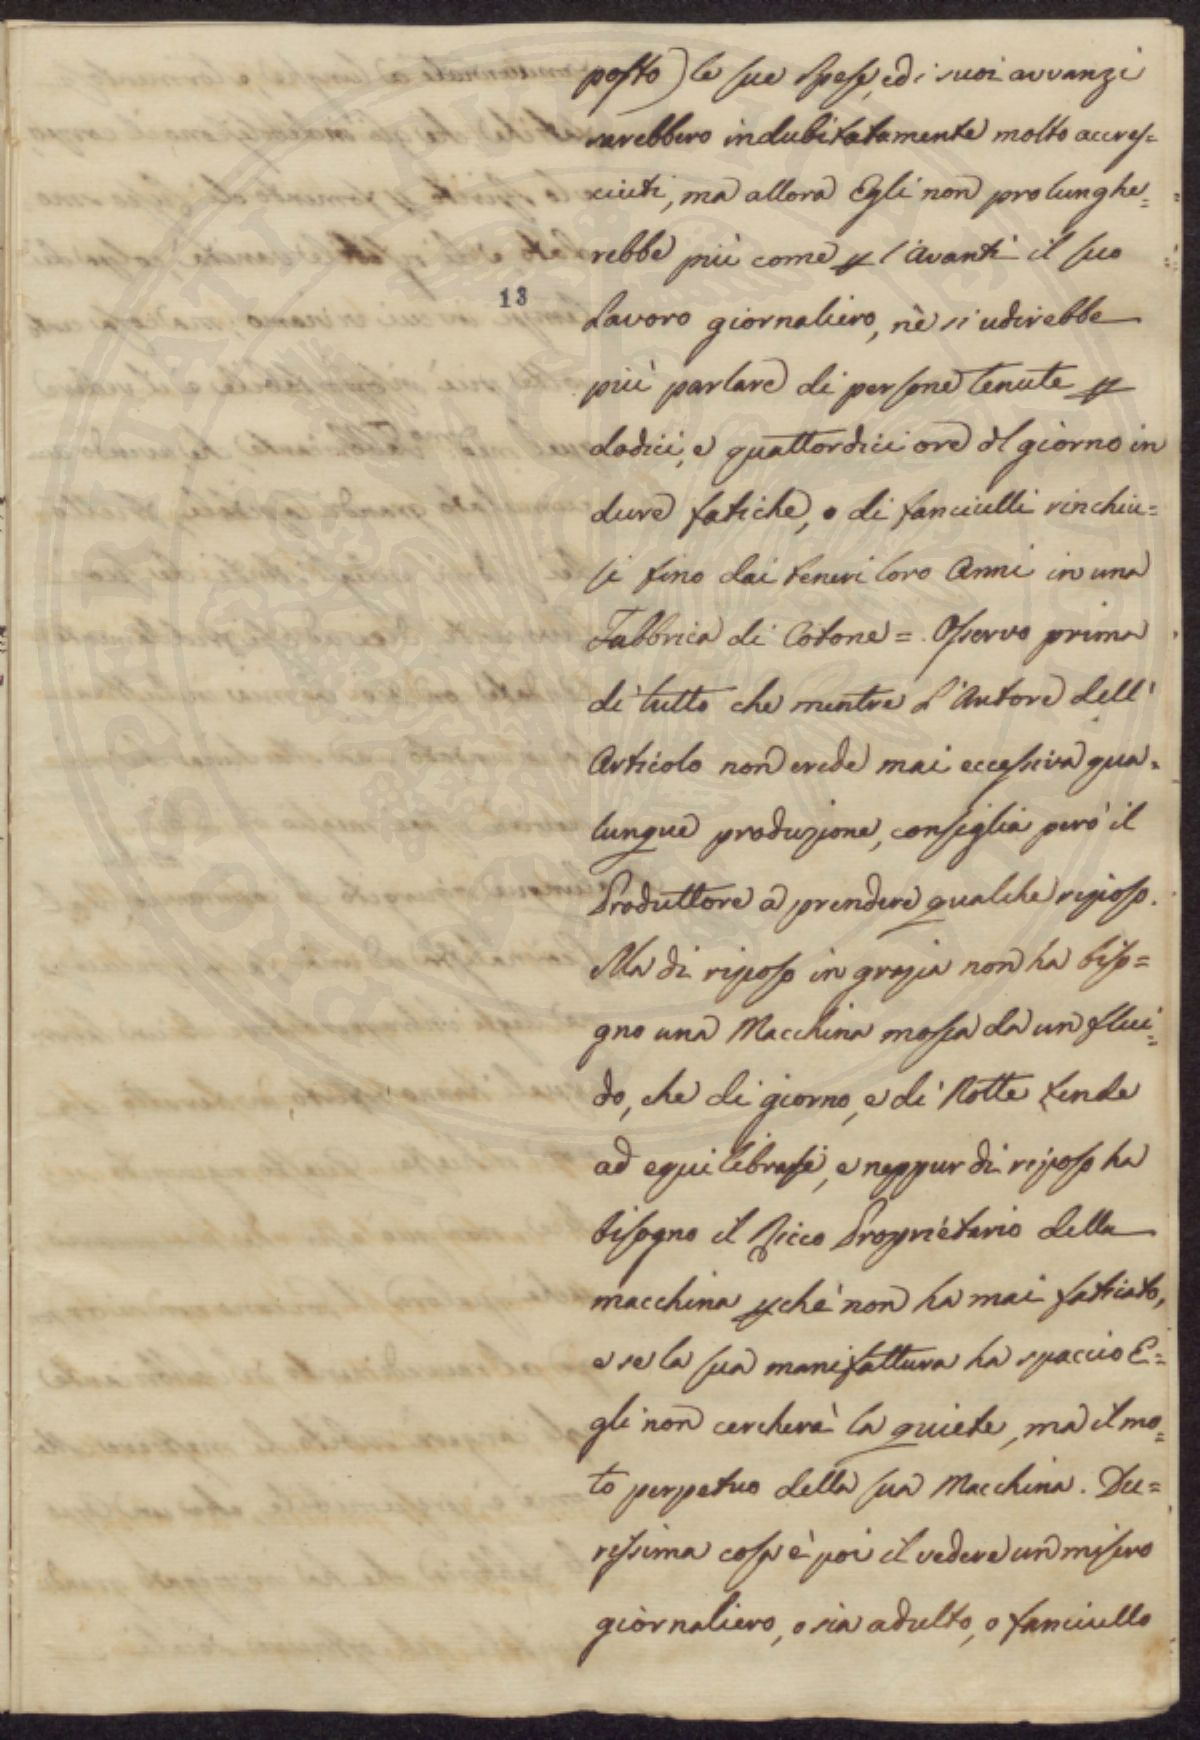 posto) le sue spese, ed i suoi avvanzi
sarebbero indubitatamente molto accres=
ciuti, ma allora Egli non prolunghe=
rebbe più come p l'avanti il suo
13
Lavoro giornaliero, nè si udirebbe
più parlare di persone tenute p
dodici, e quattordici ore al giorno in
dure fatiche, o di fanciulli rinchiu=
si fino dai teneri loro Anni in una
Fabbrica di Cotone =. Osservo prima
di tutto che mentre L'Autore dell'
Articolo non crede mai eccessiva qua=
lunque produzione, consiglia però il
Produttore a prendere qualche riposo.
Ma di riposo in grazia non ha biso=
gno una Macchina mossa da un flui=
do, che di giorno, e di Notte tende
ad equilibrarsi, e neppur di riposo ha
bisogno il Ricco Proprietario della
macchina pchè non ha mai faticato,
e se la sua manifattura ha spaccio E=
gli non cercherà la quiete, ma il mo=
to perpetuo della sua Macchina. Du=
rissima cosa è poi il vedere un misero
giornaliero, o sia adulto, o fanciullo